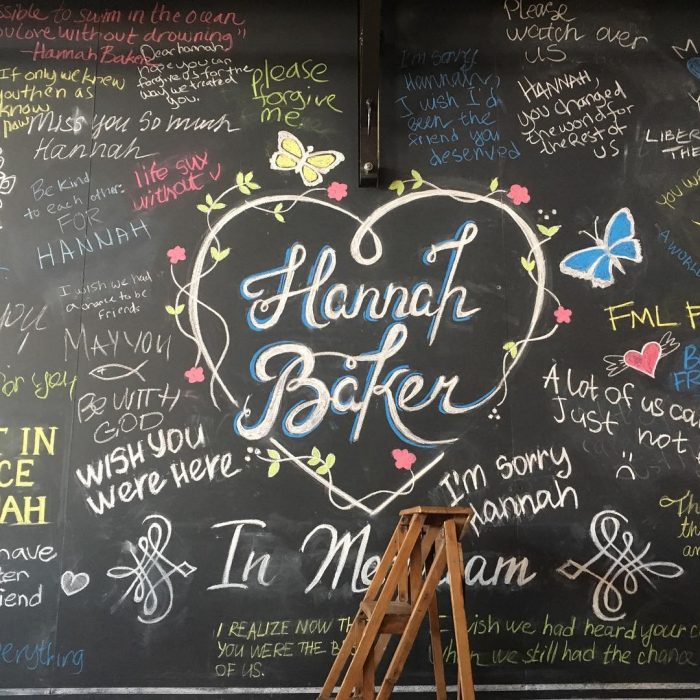 ssible to swim in the ocean
you love without drowning"
-Hannah Baker
If only we knew
you then as
know
now
Dear hannah,
hope you can
forgive us for the
way we treated
you.
please
forgive
me
Miss you so much
Hannah
life sux
without u
Be kind
to each other
FOR
HANNAH
I wish we had
a chance to be
friends
MAY YOU
BE WITH
GOD
WISH YOU
were HERE
you
for you
T IN
CE
AH
have
ten
friend
everything
Hannah
Baker
In Me am
I REALIZE NOW TH
YOU WERE THE B
OF US.
I'm sorry
Hannah,
I wish I'd
been the
friend you
deserved
Please
watch over
US
HANNAH,
you changed
the world for
the rest of
US
LIBE
THE
A WOR
FML F
A lot of us ca
Just not
I'm sorry
Hannah
Th
th
an
wish we had heard your c
when we still had the chance